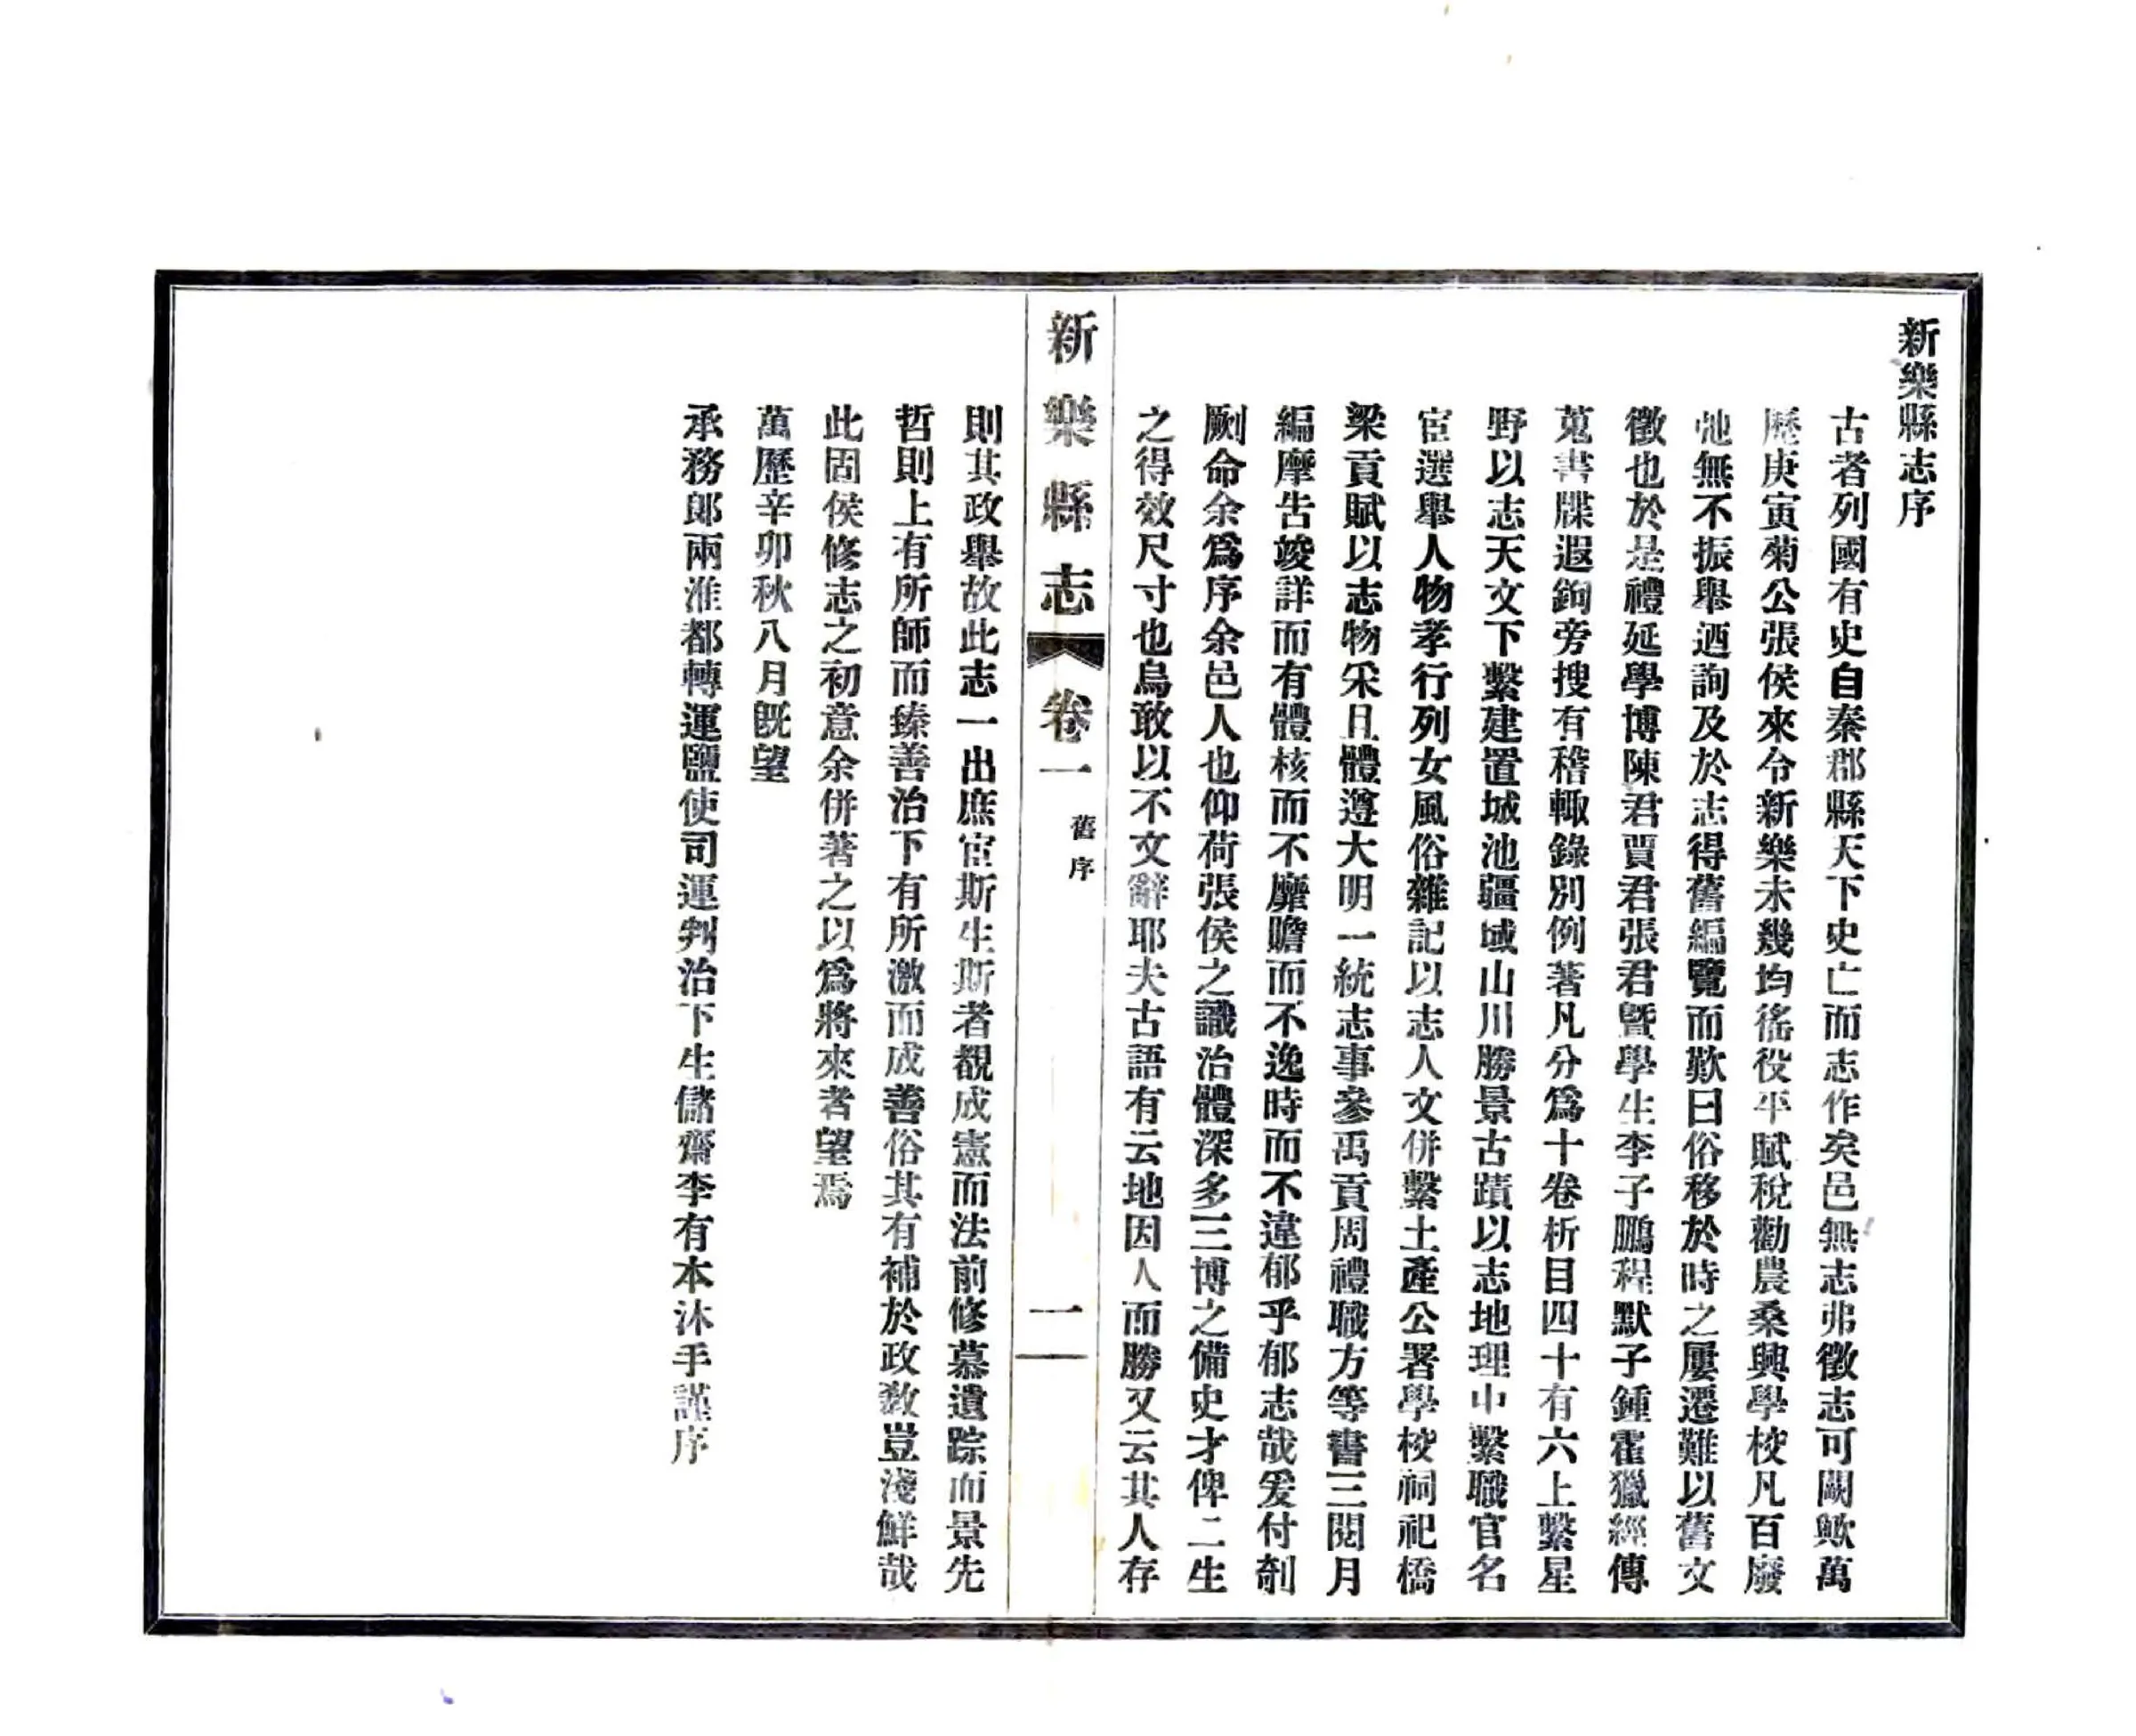 新樂縣志序
古者列國有史自秦郡縣天下史亡而志作矣邑無志弗徵志可闕歟萬
歷庚寅菊公張侯來令新樂未幾均徭役平賦稅勸農桑興學校凡百廢
弛無不振舉迺詢及於志得舊編覽而歎曰俗移於時之屢遷難以舊文
徵也於是禮延學博陳君賈君張君曁學生李子鵬程默子鍾霍獵經傳
蒐書牒遐鉤旁搜有稽輙錄別例著凡分爲十卷析目四十有六上繫星
野以志天文下繫建置城池疆域山川勝景古蹟以志地理中繫職官名
宦選舉人物孝行列女風俗雜記以志人文併繫土產公署學校祠祀橋
梁貢賦以志物采且體遵大明一統志事參禹貢周禮職方等書三閱月
編摩告竣詳而有體核而不靡贍而不逸時而不違郁乎郁志哉爰付剞
劂命余爲序余邑人也仰荷張侯之識治體深多三博之備史才俾二生
之得效尺寸也烏敢以不文辭耶夫古語有云地因人而勝又云其人存
新樂縣志 卷一 舊序 一
則其政舉故此志一出庶宦斯生斯者覩成憲而法前修慕遺踪而景先
哲則上有所師而臻善治下有所激而成善俗其有補於政敎豈淺鮮哉
此固侯修志之初意余併著之以爲將來者望焉
萬歷辛卯秋八月旣望
承務郎兩淮都轉運鹽使司運判治下生儲齋李有本沐手謹序